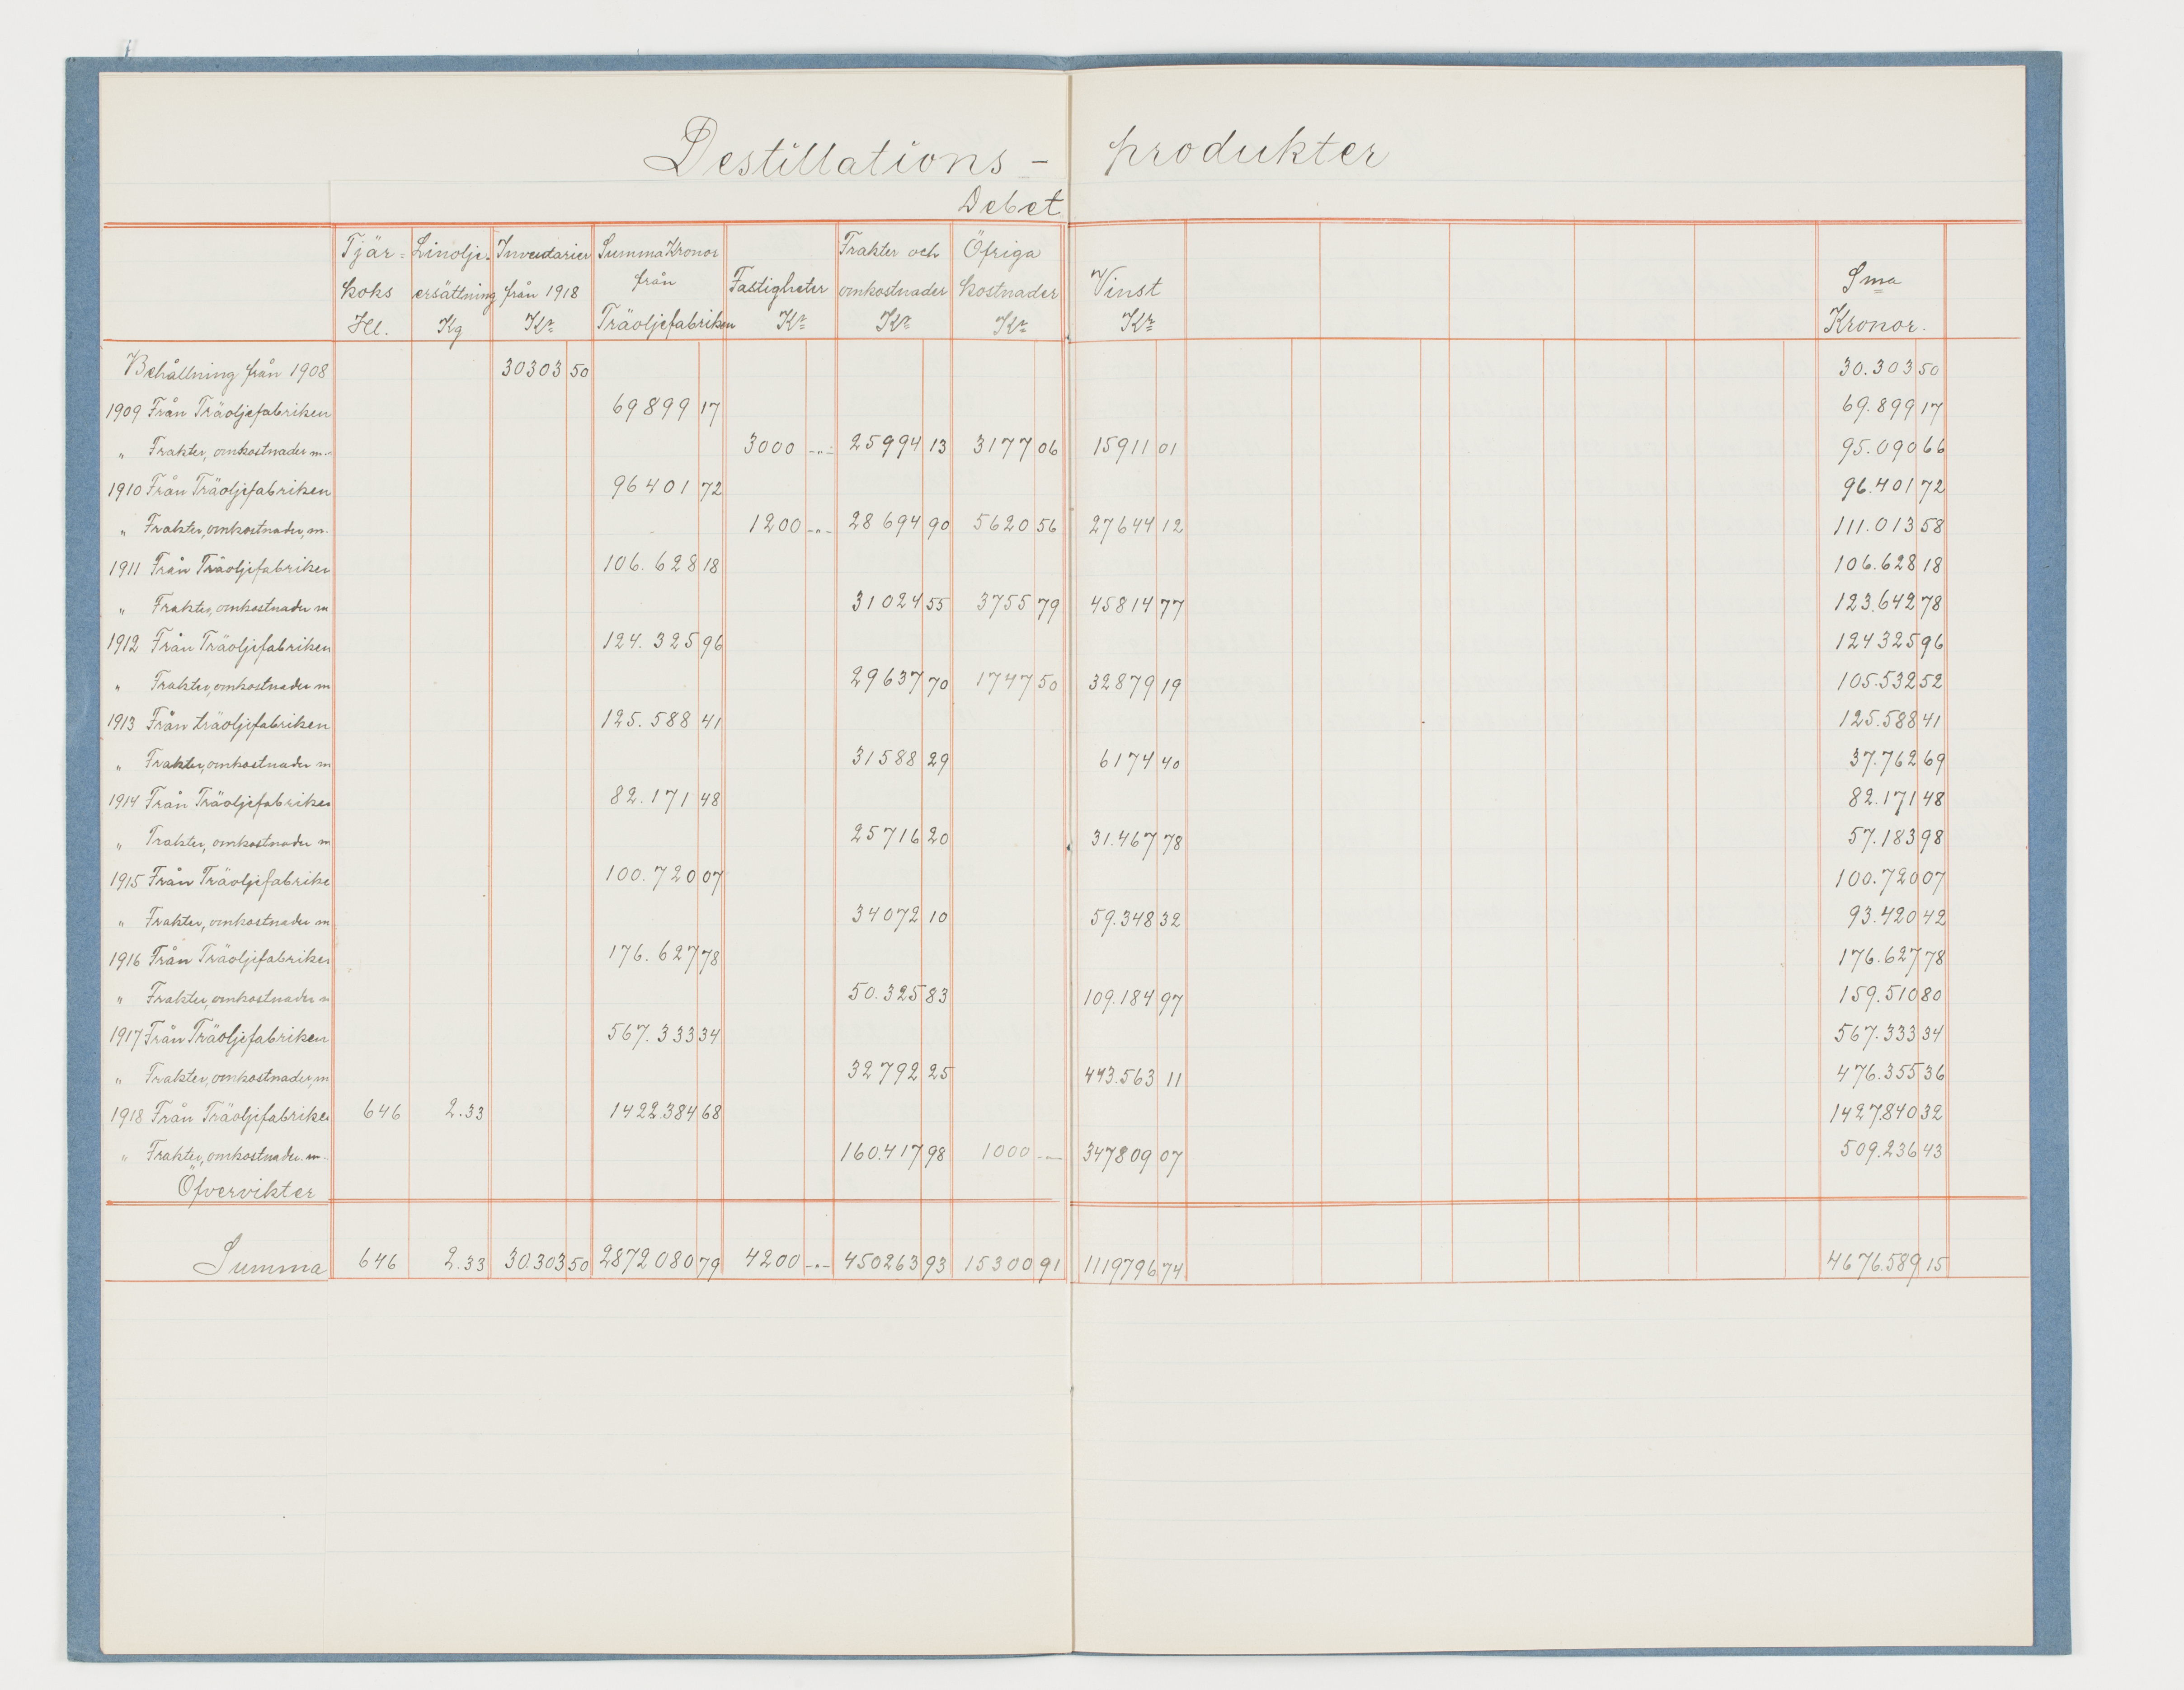 Destillations - produkter
Debet
Tjär- Linolje- Inventarier Summa Kronor Frakter och Öfriga
koks ersättning från 1918 från Fastigheter omkostnader kostnader Vinst Sma
Hl. Kg Kr Träoljefabriken Kr Kr Kr Kr Kronor.
Behållning från 1908 30303 50 30.303 50
1909 Från Träoljefabriken 69899 17 69.899 17
" Frakter, omkostnader m. 3000 -"- 25994 13 3177 06 15911 01 95.090 66
1910 Från Träoljefabriken 96401 72 96.401 72
" Frakter, omkostnader, m. 1200 -"- 28694 90 5620 56 27644 12 111.013 58
1911 Från Träoljefabriken 106.628 18 106.628 18
" Frakter, omkostnader m 31024 55 3755 79 45814 77 123.642 78
1912 Från Träoljefabriken 124.325 96 124325 96
" Frakter, omkostnader m 29637 70 1747 50 32879 19 105.532 52
1913 Från träoljefabriken 125.588 41 125.588 41
" Frakter, omkostnader m 31588 29 6174 40 37.762 69
1914 Från Träoljefabriken 82.171 48 82.171 48
" Frakter, omkostnader m 25716 20 31.467 78 57.183 98
1915 Från Träoljefabrike 100.720 07 100.720 07
" Frakter, omkostnader m 34072 10 59.348 32 93.420 42
1916 Från Träoljefabriken 176.627 78 176.627 78
" Frakter, omkostnader m 50.325 83 109.184 97 159.510 80
1917 Från Träoljefabriken 567.333 34 567.333 34
" Frakter, omkostnader, m 32792 25 443.563 11 476.355 36
1918 Från Träoljefabriken 646 2.33 1422.384 68 1427.840 32
" Frakter, omkostnader. m. 160.417 98 1000 -- 347809 07 509.236 43
Öfvervikter
Summa 646 2.33 30.303 50 2872080 79 4200 -"- 450263 93 15300 91 1119796 74 4676.589 15